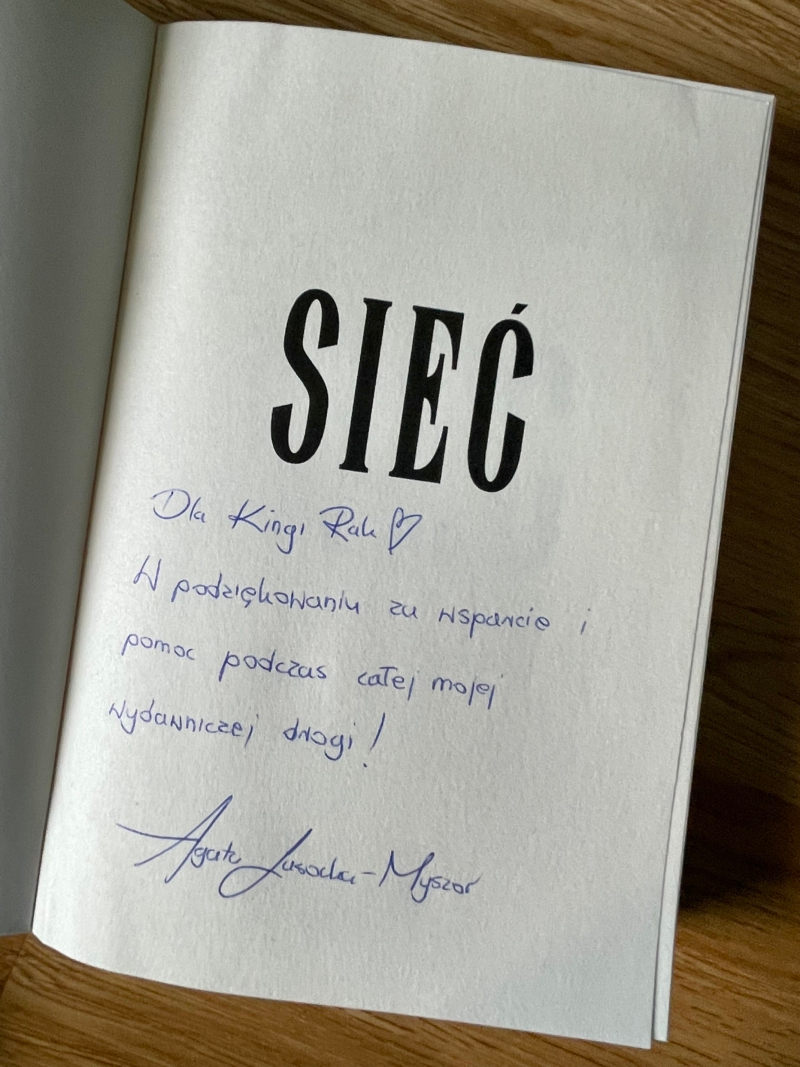 SIEĆ
Dla Kingi Rak ♡
W podziękowaniu za wsparcie i
pomoc podczas całej mojej
wydawniczej drogi!
Agata Lasocka-Myszor